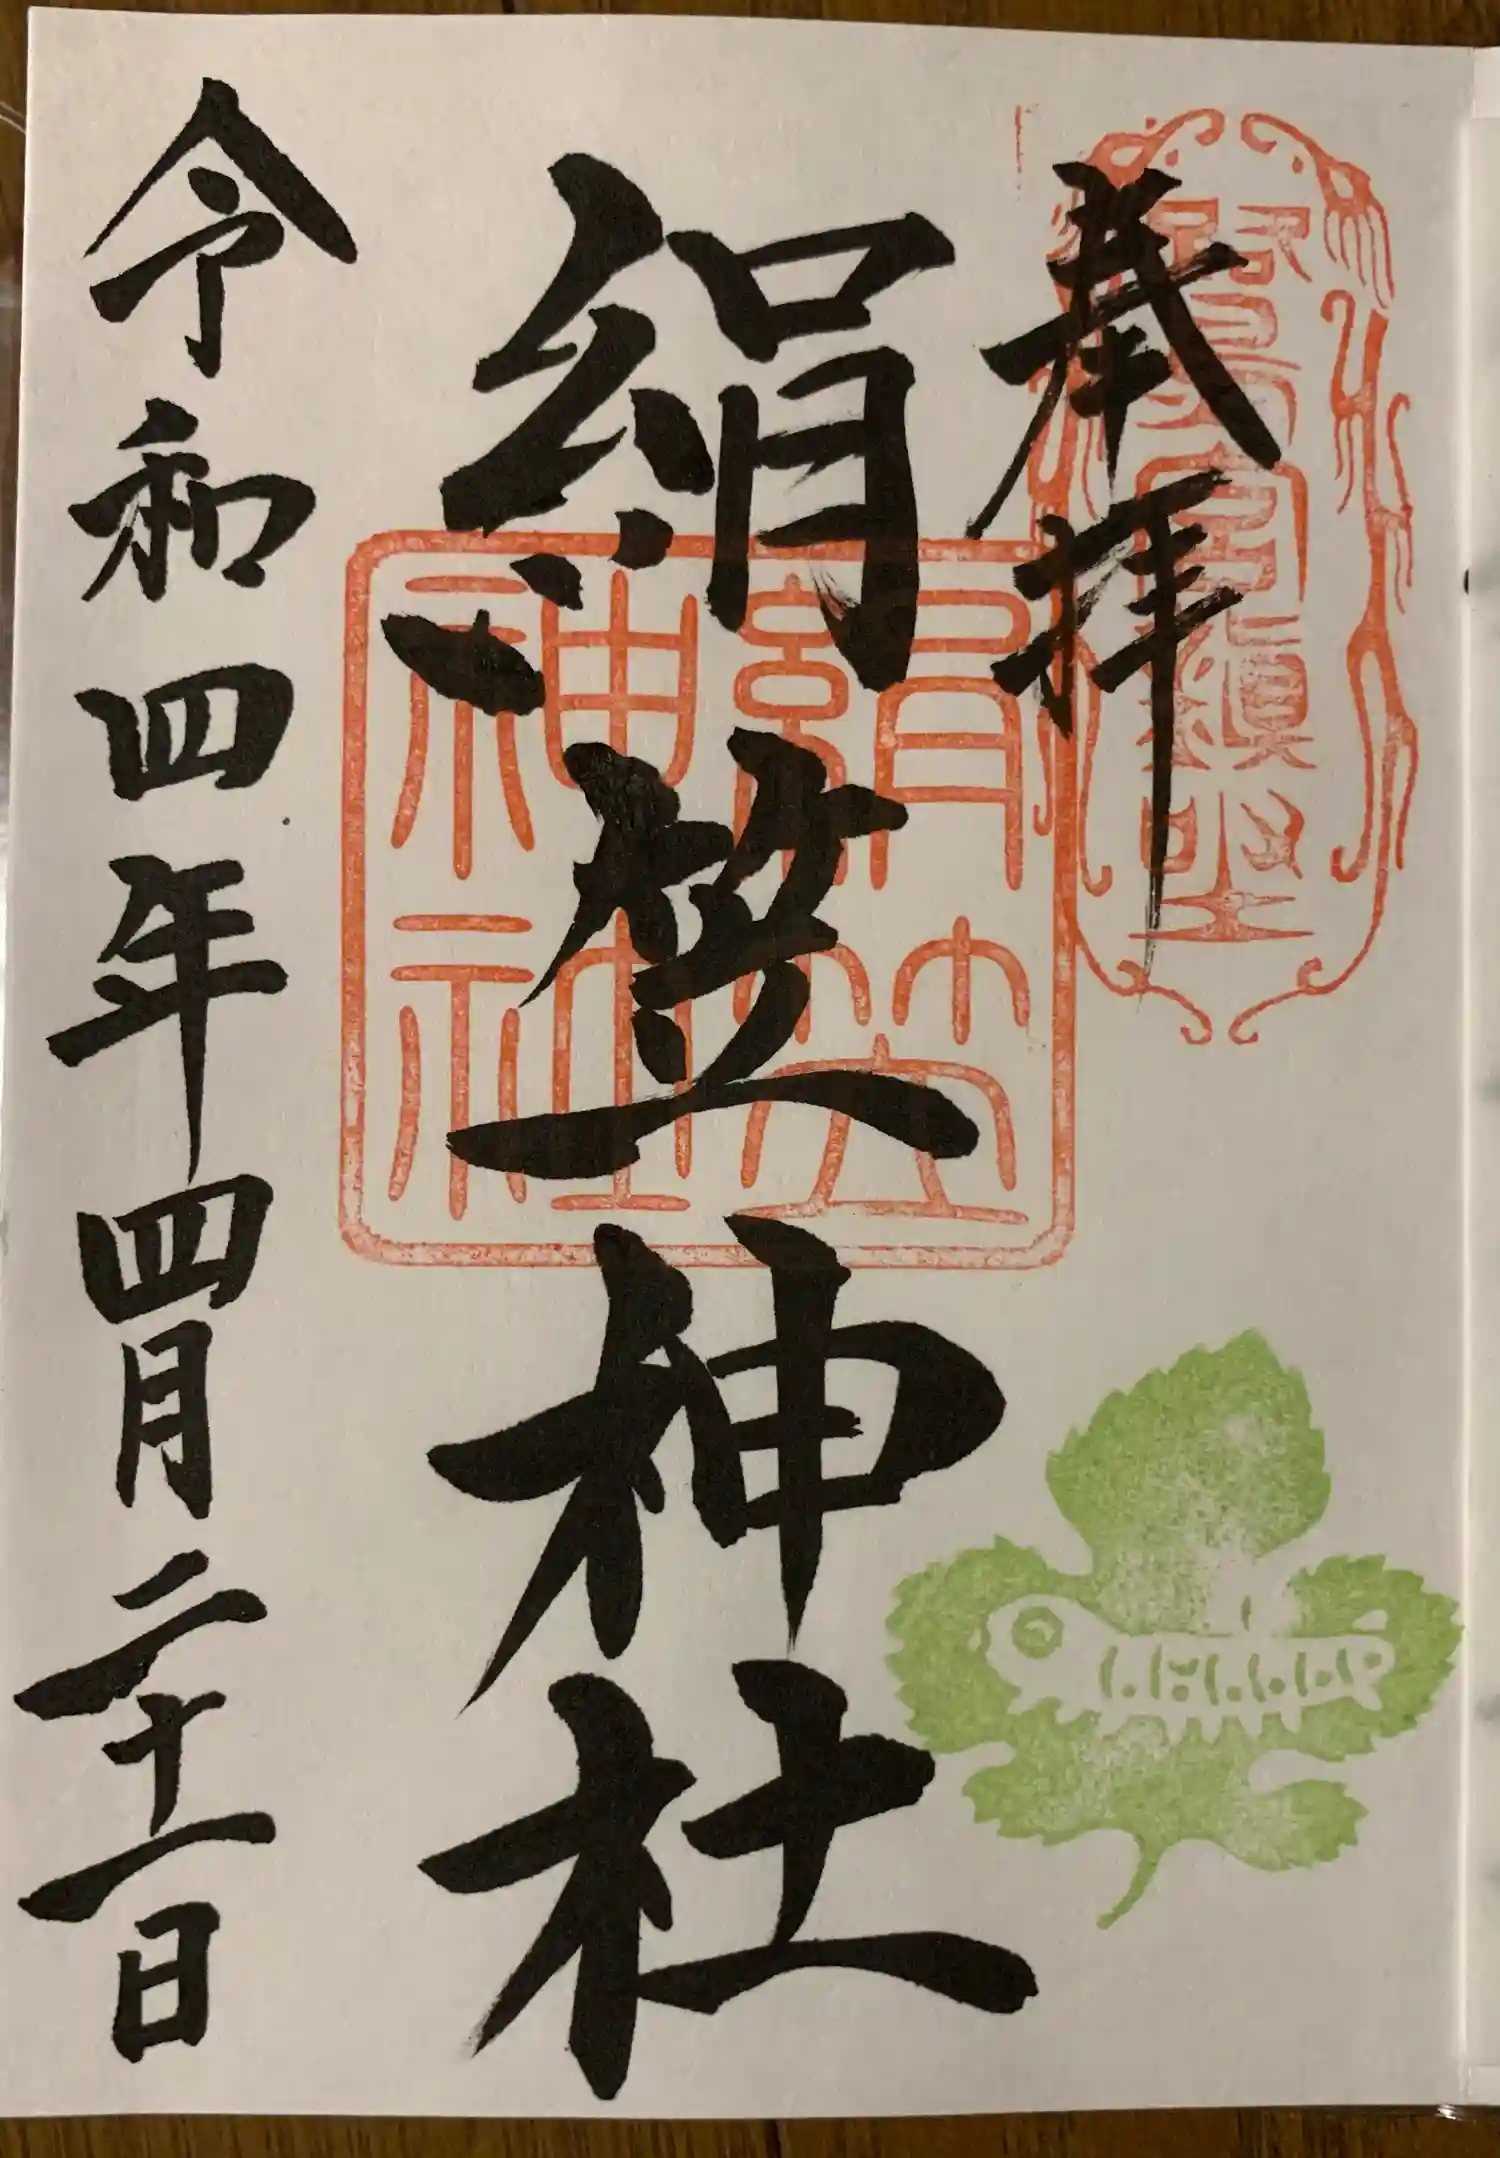 奉拝
絹笠神社
令和四年四月二十一日
絹笠
神社